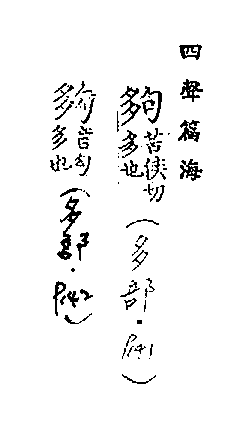 四聲篇海
夠苦侯切多也(多部.P141)
夠音勾多也(多部.P142)